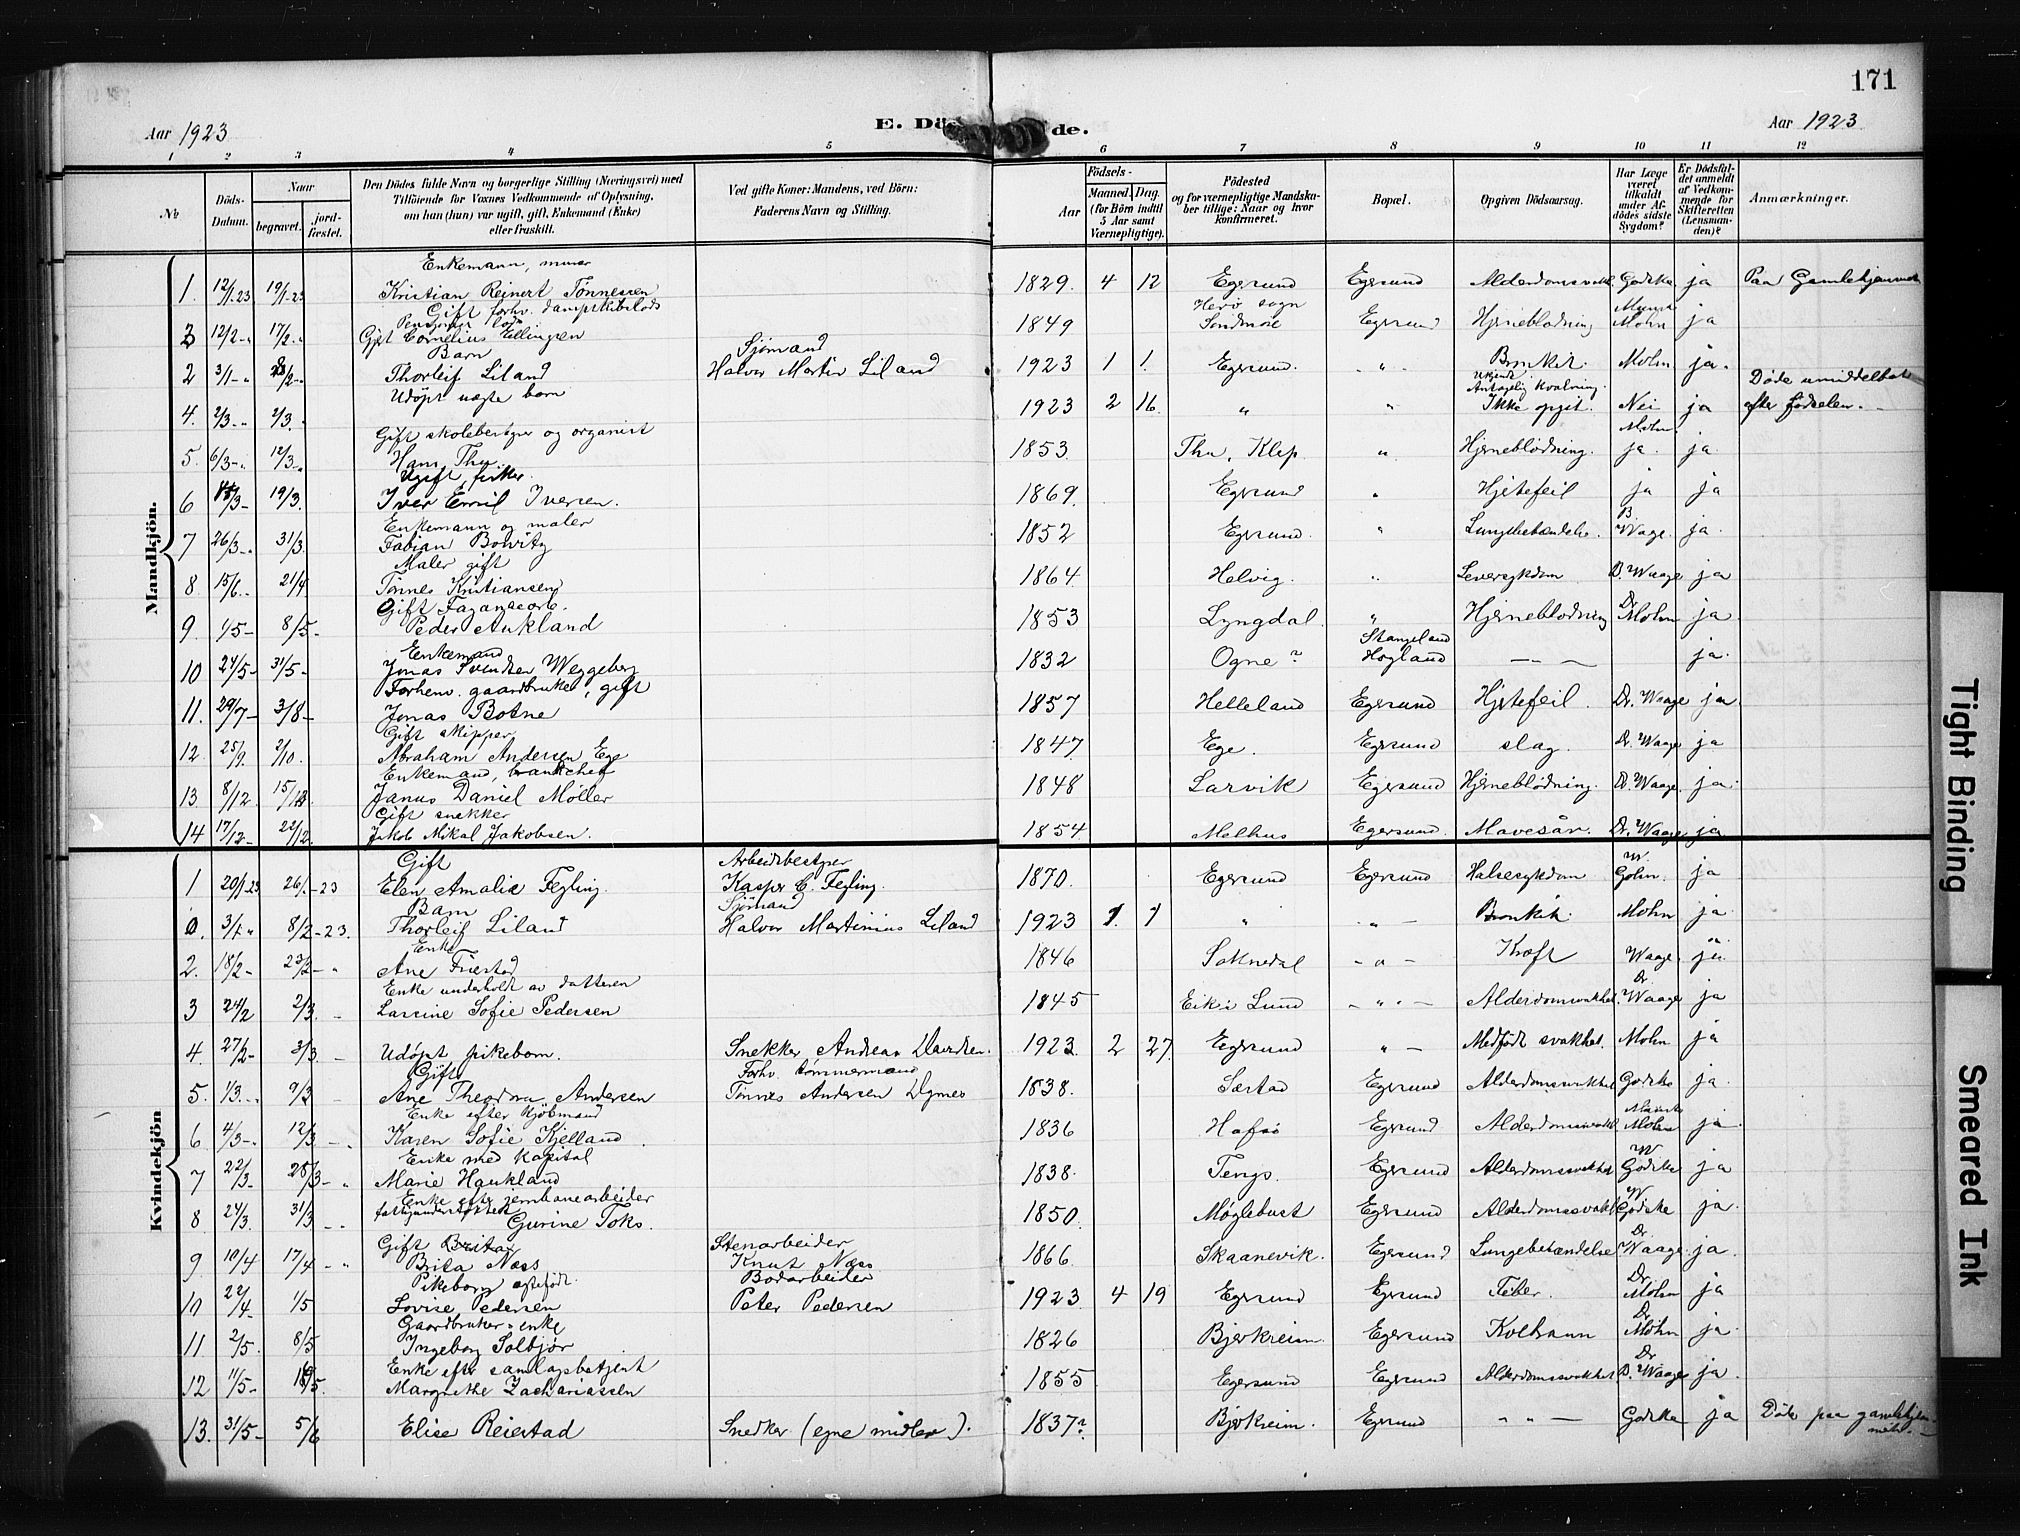 171
E. Dö de.
Aar 1923 Aar 1923
1 2 3 4 5 6 7 8 9 10 11 12
№
Döds-Datum.
Naar
begravet. jord-fæstet.
Den Dödes fulde Navn og borgerlige Stilling (Næringsvei) med Tilföiende for Voxnes Vedkommende af Oplysning, om han (hun) var ugift, gift, Enkemand (Enke) eller fraskilt.
Ved gifte Koner: Mandens, ved Börn: Faderens Navn og Stilling.
Födsels-
Aar Maaned. Dag.
(for Börn indtil 5 Aar samt Værnepligtige).
Födested og for værnepligtige Mandskaber tillige: Naar og hvor konfirmeret.
Bopæl.
Opgiven Dödsaarsag.
Har Læge været tilkaldt under Afdödes sidste Sygdom?
Er Dödsfaldet anmeldt af Vedkommende for Skifteretten (Lensmanden)?
Anmærkninger.
Mandkjön.
Enkemann, murer
1. 12/1.23 19/1-23 Kristian Reinert Tønnessen 1829. 4 12 Egersund Egersund Alderdomssvakh. Godske ja Paa Gamlehjemmet
Gift forhv. dampskibslods
3 12/2-" 17/2-" Gift Cornelius Ellingsen 1849 Herø sogn Søndmøre Egersund Hjerneblødning Mohn ja
Barn Sjømand
2 3/1-" 8/2-" Thorleif Liland Halvor Martin Liland 1923 1 1. Egersund. - " - Bronkit. Mohn ja.
Udøpt uægte barn Ukjendt Antagelig kvælning. Døde umiddelbart
4. 2/3-" 2/3. 1923 2 16 " " Ikke opgit. Nei ja efter fødselen.
Gift skolebestyrer og organist
5. 6/3-" 12/3-" Hans Thu. 1853 Thu, Klep " Hjerneblødning. Mohn ja. ja
Ugift, fisker.
6 /3- 19/3. Iver Emil Iversen. 1869. Egersund " Hjertefeil ja ja
Enkemann og maler
7 26/3-" 31/3. Fabian Bowitz 1852 Egersund. " Lungebetændelse. Waage. ja.
Maler gift
8. 15/6.. 21/4 Tønnes Kristiansen 1864 Helvig. " Leversykdom B. Waage ja
9. 1/5- 8/5- Peder Aukland 1853 Lyngdal. " Hjerneblødning Dr. Mohn ja.
Enkemand Stangeland
10 24/5- 31/5- Jonas Svendsen Weggeberg 1832 Ogne? Hogland - - - ja.
Forhenv. gaardbruker, gift
11. 29/7- 3/8- Jonas Botne 1857 Helleland Egersund Hjertefeil. Dr. Waage ja
Gift skipper
12. 25/9. 2/10. Abraham Andersen Ege 1847 Ege. Egersund slag. Dr. Waage ja
Enkemand, brandchef
13 8/12. 15/12. Janus Daniel Møller 1848 Larvik Egersund Hjerneblødning. Dr. Waage. ja.
Gift snekker
14 17/12- 22/12. Jakob Mikal Jakobsen. 1854 Melhus Egersund. Mavesår. Dr. Waage ja
Kvindekjön
Gift Arbeidsbestyrer
1 20/1.23 26/1-23 Elen Amalie Fegling. Kasper C. Fegling. 1870. Egersund Egersund Halsesykdom ja
Barn Sjömand
0. 3/1 " 8/2-23. Thorleif Liland Halvor Martinius Liland 1923 1. 1 " - " - Bronkit. Mohn ja
Enke
2. 18/2- 23/2-" Ane Fuestad 1846 Soknedal - " - Kræft Waage. ja
Enke underholdt av datteren
3 24/2 2/3. - Lassine Sofie Pedersen 1845 Eik i Lund - " - Alderdomssvakhet. Dr. Waage ja
4. 27/2- 3/3. - Udøpt pikebarn. Snekker Andreas Davidsen. 1923. 2 27. Egersund " - Medfødt svakhet. Mohn ja
Gift Forhv. tømmermand
5. 1/3. 9/3 - Ane Theodora Andersen Tønnes Andersen Dyrnes 1838. Sæstad Egersund Alderdomssvakhet Godske ja.
Enke efter kjøbmand
6. 4/3-" 12/3-". Karen Sofie Kjelland. 1836 Hafsø Egersund Alderdomssvakh. Mohn ja.
Enke med kapital
7 22/3- 28/3-" Marie Haukland 1838. Tengs. Egersund Alderdomssvakhet Godske ja
Enke efter jernbanearbeider
8 24/3. 31/3 -. fattigunderstøttet Gurine Toks. 1850. Møglebust Egersund Alderdomssvakh Godske ja.
Gift Brita Stenarbeider
9 10/4 17/4 -" Brita Næss Knut Næss 1866 Skaanevik. Egersund Lungebetændelse Dr. Waage. ja.
Pikebarn egtefødt. Bodarbeider
10 22/4. 1/5 Lovise Pedersen Peter Pedersen 1923 4 19 Egersund Egersund Feber. Dr. Mohn ja
Gaardbruker-enke
11 2/5. 8/5 Ingeborg Solbjør 1826 Bjerkreim. Egersund Koldbrann Dr. Mohn ja.
Enke efter samlagsbetjent
12 11/5- /5. Margrethe Zachariassen 1855 Egersund Egersund Alderdomssvakhet Dr. B. Waage ja.
13. 31/5- 5/6 Elise Reiestad Snedker (egne midler). 1837? Bjerkreim. Egersund " " - Godske ja Døde paa gamlehjemmet.
Tight Binding
Smeared Ink